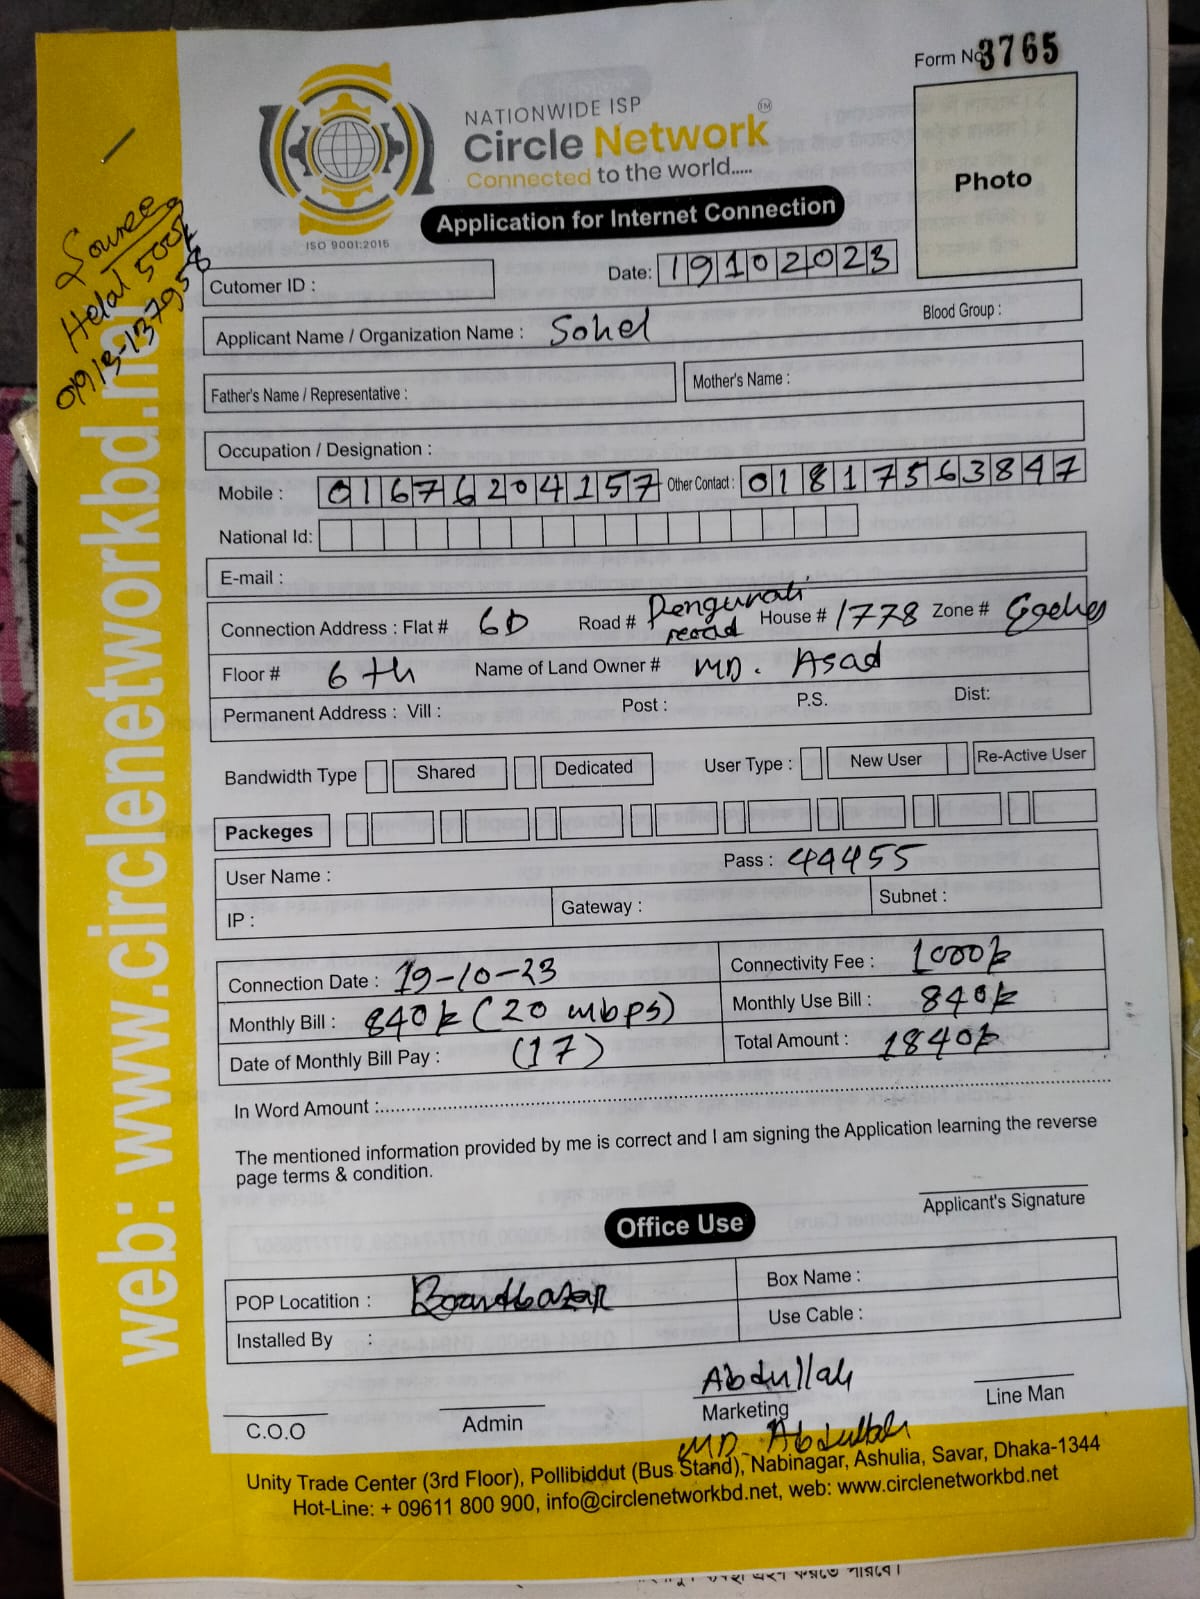 Form No 3765
NATIONWIDE ISP
Circle Network TM
Connected to the world.....
ISO 9001:2015
Application for Internet Connection
Photo
Source
Helal 500k
01913-137958
web: www.circlenetworkbd.net
Cutomer ID :
Date: 19102023
Applicant Name / Organization Name : Sohel
Blood Group :
Father's Name / Representative :
Mother's Name :
Occupation / Designation :
Mobile : 01676204157 Other Contact : 01817563847
National Id:
E-mail :
Connection Address : Flat # 6D Road # road House # 1778 Zone #
Floor # 6th Name of Land Owner # MD. Asad
Permanent Address : Vill : Post : P.S. Dist:
Bandwidth Type Shared Dedicated User Type : New User Re-Active User
Packeges
User Name : Pass : 44455
IP : Gateway : Subnet :
Connection Date : 19-10-23 Connectivity Fee : 1000k
Monthly Bill : 840k (20 mbps) Monthly Use Bill : 840k
Date of Monthly Bill Pay : (17) Total Amount : 1840k
In Word Amount :
The mentioned information provided by me is correct and I am signing the Application learning the reverse
page terms & condition.
Applicant's Signature
Office Use
POP Locatition : Boardbazar
Box Name :
Installed By :
Use Cable :
Abdullah
C.O.O Admin Marketing Line Man
MD. Abdullah
Unity Trade Center (3rd Floor), Pollibiddut (Bus Stand), Nabinagar, Ashulia, Savar, Dhaka-1344
Hot-Line: + 09611 800 900, info@circlenetworkbd.net, web: www.circlenetworkbd.net